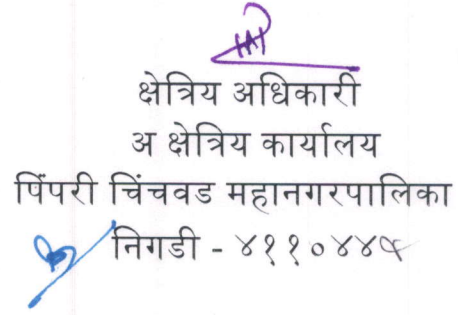 क्षेत्रिय अधिकारी
अ क्षेत्रिय कार्यालय
पिंपरी चिंचवड महानगरपालिका
निगडी - ४११०४४